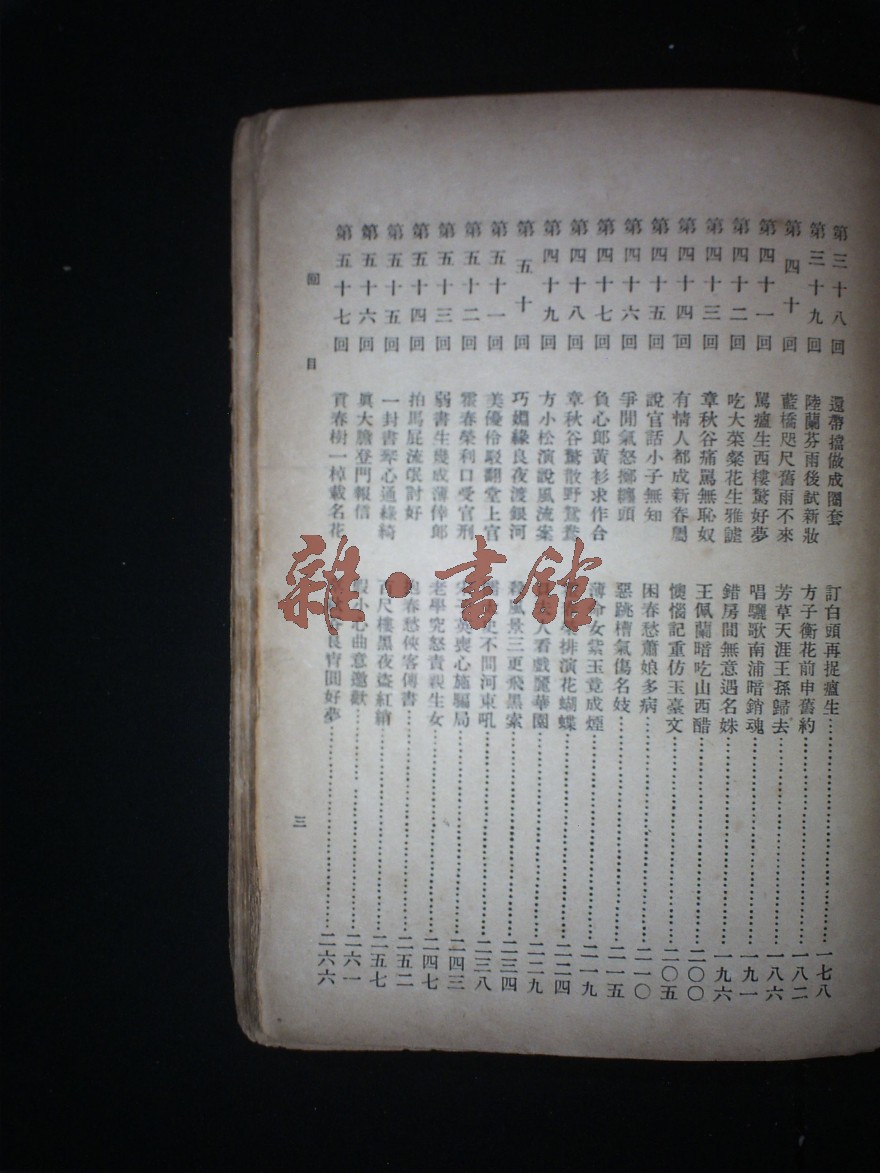 第三十八回 還帶擋做成圈套 訂白頭再捉瘟生 一七八
第三十九回 陸蘭芬雨後試新妝 方子衡花前申舊約 一八二
第四十回 藍橋咫尺舊雨不來 芳草天涯王孫歸去 一八六
第四十一回 罵瘟生西樓驚好夢 唱驪歌南浦暗銷魂 一九一
第四十二回 吃大菜粲花生雅謔 錯房間無意遇名姝 一九六
第四十三回 章秋谷痛罵無恥奴 王佩蘭暗吃山西醋 二〇〇
第四十四回 有情人都成新眷屬 懊惱記重仿玉臺文 二〇五
第四十五回 說官話小子無知 困春愁蕭娘多病 二一〇
第四十六回 爭閒氣怒擲纏頭 惡跳槽氣傷名妓 二一五
第四十七回 負心郎黃衫求作合 薄命女紫玉竟成煙 二一九
第四十八回 章秋谷驚散野鴛鴦 排演花蝴蝶 二二四
第四十九回 方小松演說風流案 人看戲麗華園 二二九
第五十回 巧姻緣良夜渡銀河 風景三更飛黑索 二三四
第五十一回 美優伶駁翻堂上官 史不聞河東吼 二三八
第五十二回 霍春榮利口受官刑 英喪心施騙局 二四三
第五十三回 弱書生幾成薄倖郎 老學究怒責親生女 二四七
第五十四回 拍馬屁流氓討好 春愁俠客傳書 二五二
第五十五回 一封書琴心通綠綺 百尺樓黑夜盜紅綃 二五七
第五十六回 眞大膽登門報信 假小心曲意邀歡 二六一
第五十七回 貢春樹一棹載名花 良宵圓好夢 二六六
回目
三
雜·書館